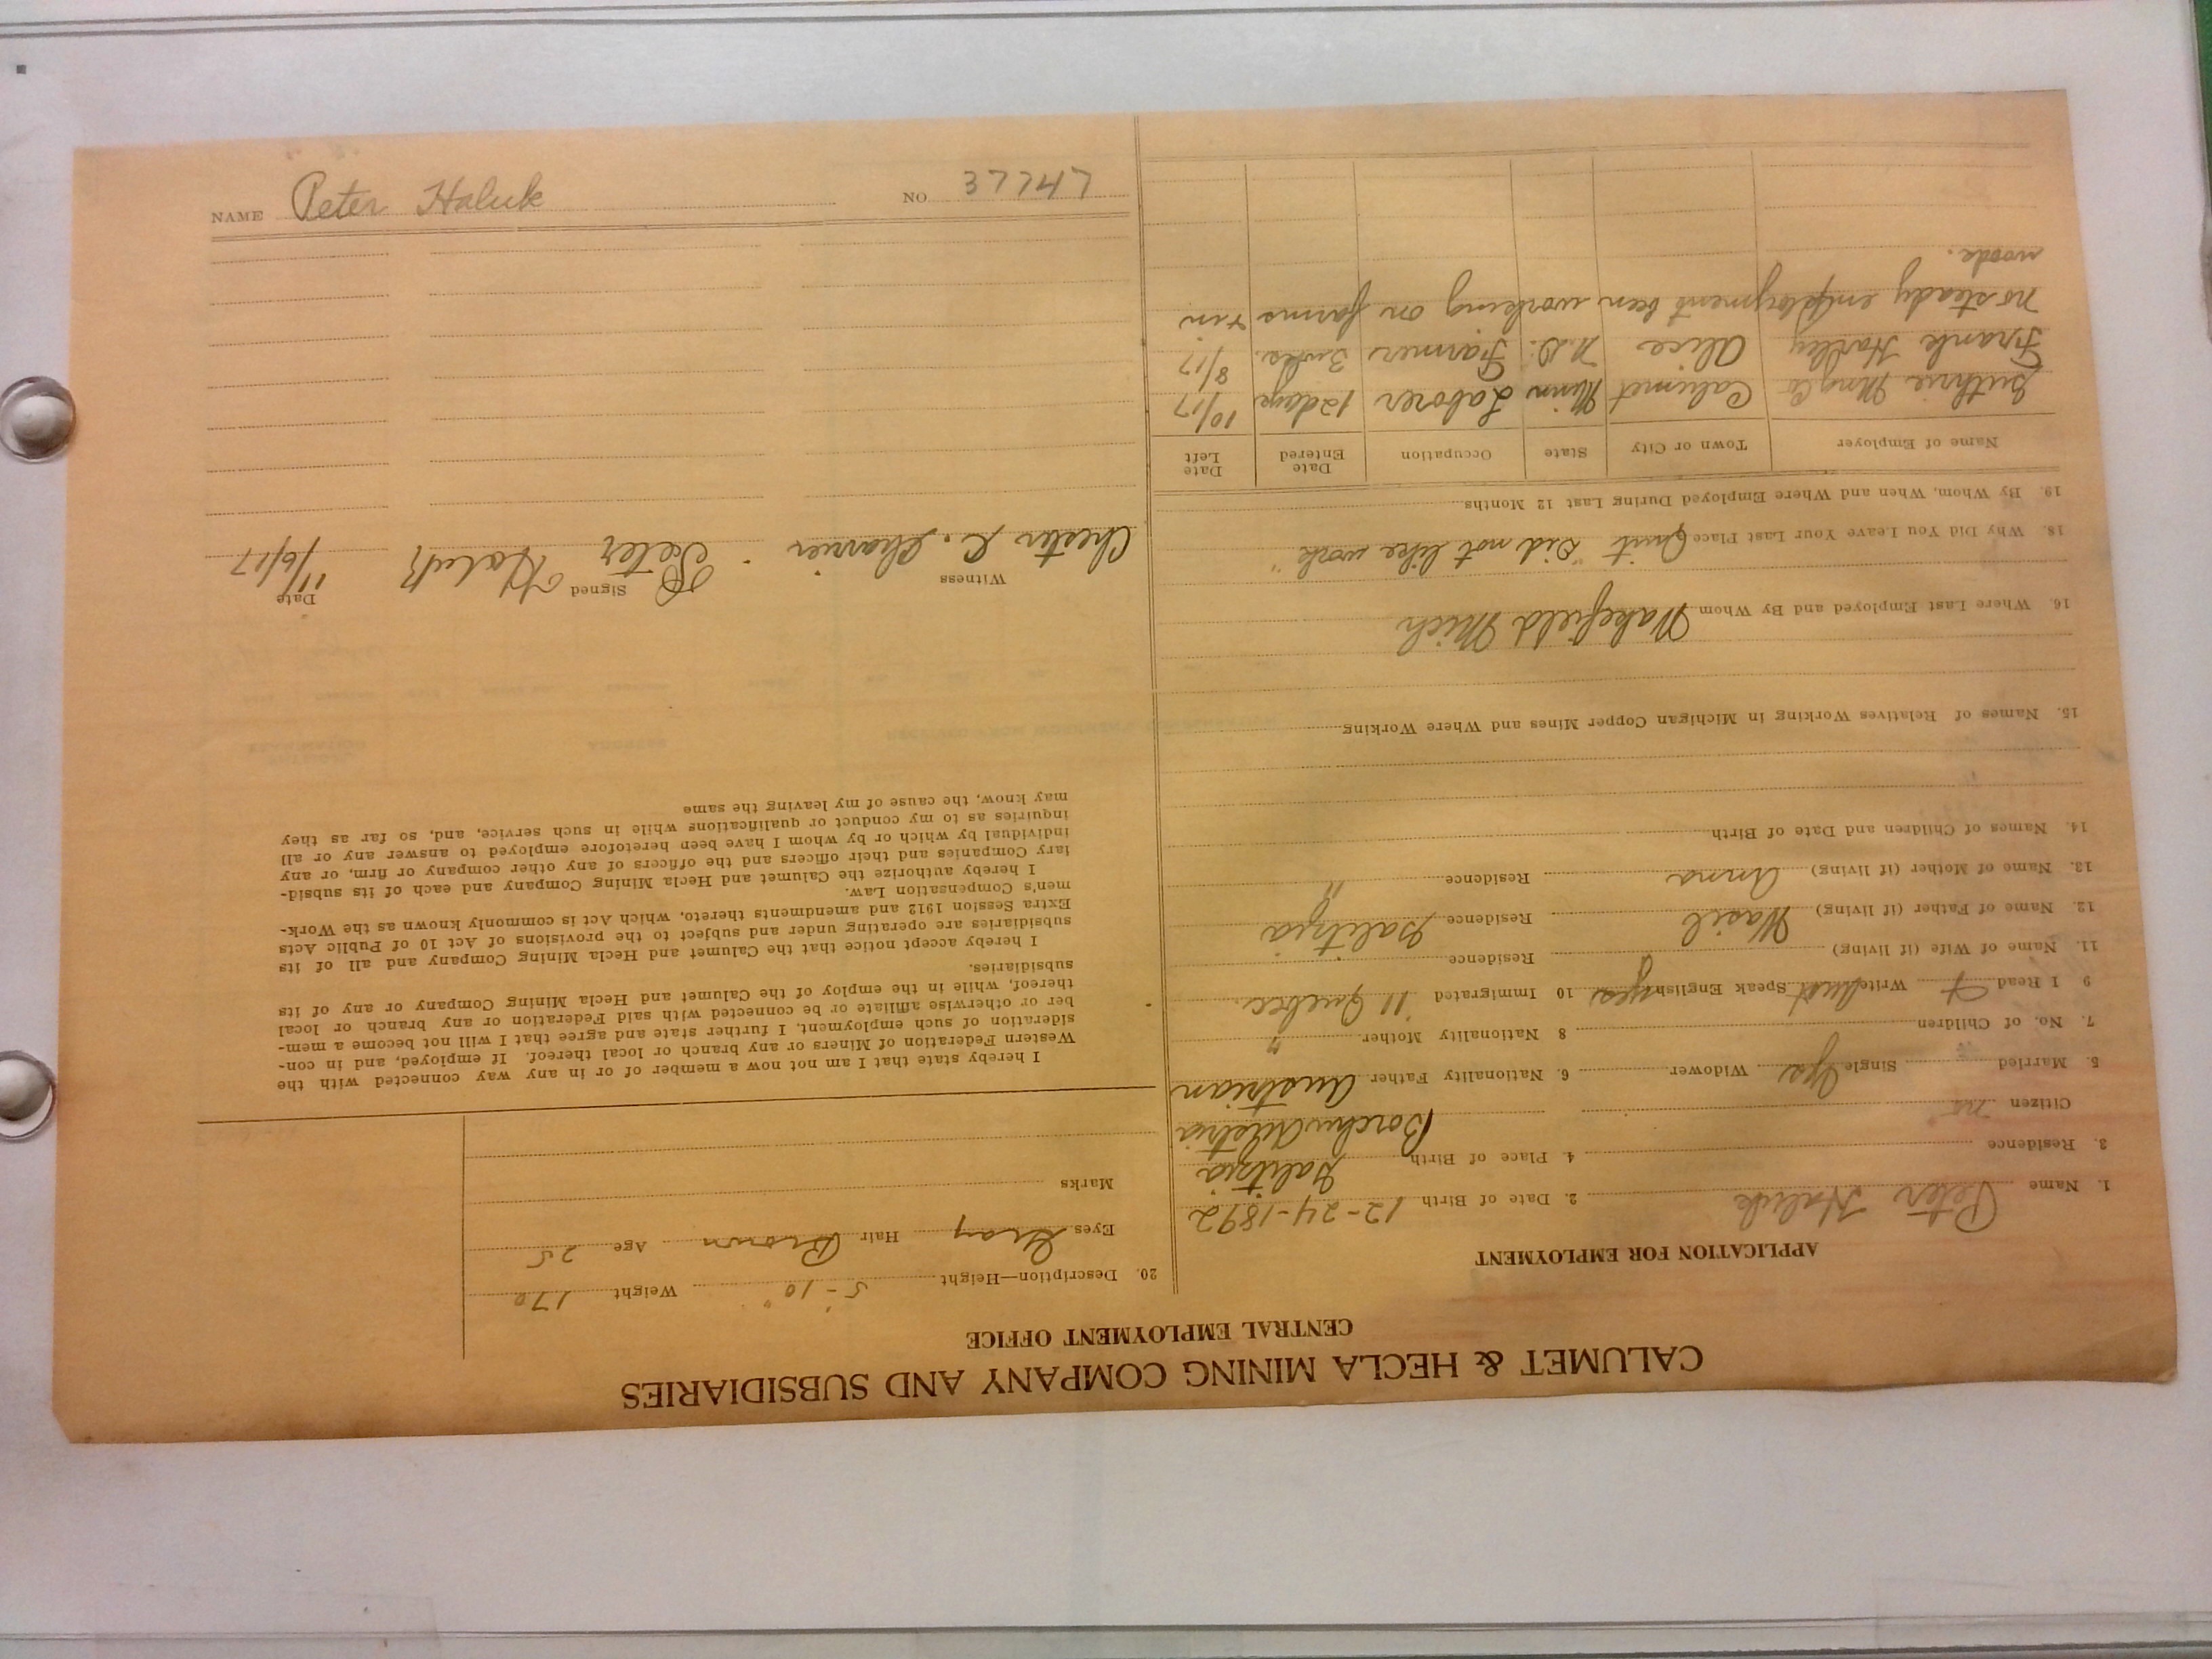 CALUMET & HECLA MINING COMPANY AND SUBSIDIARIES
CENTRAL EMPLOYMENT OFFICE
APPLICATION FOR EMPLOYMENT
1. Name Peter Haluk 2. Date of Birth 12-24-1892
3. Residence 4. Place of Birth Galitzia
Citizen no
5. Married Single Yes Widower 6. Nationality Father Austrian
7. No. of Children 8 Nationality Mother "
9 I Read + Write Speak English yes 10 Immigrated 11 Quebec.
11. Name of Wife (if living) Residence
12. Name of Father (if living) Wasil Residence Galitzia
13. Name of Mother (if living) Anna Residence "
14. Names of Children and Date of Birth
15. Names of Relatives Working in Michigan Copper Mines and Where Working
16. Where Last Employed and By Whom Wakefield Mich
18. Why Did You Leave Your Last Place Quit "Did not like work"
19. By Whom, When and Where Employed During Last 12 Months
Name of Employer Town or City State Occupation Date Entered Date Left
Guthrie Mng Co Calumet Minn Laborer 12 days 10/17
Frank Harley Alice N.D. Farmer 3 wks. 8/17
No steady employment been working on farms + in
woods.
20. Description—Height 5'-10" Weight 170
Eyes Gray Hair Brown Age 25
Marks
I hereby state that I am not now a member of or in any way connected with the
Western Federation of Miners or any branch or local thereof. If employed, and in con-
sideration of such employment, I further state and agree that I will not become a mem-
ber or otherwise affiliate or be connected with said Federation or any branch or local
thereof, while in the employ of the Calumet and Hecla Mining Company or any of its
subsidiaries.
I hereby accept notice that the Calumet and Hecla Mining Company and all of its
subsidiaries are operating under and subject to the provisions of Act 10 of Public Acts
Extra Session 1912 and amendments thereto, which Act is commonly known as the Work-
men's Compensation Law.
I hereby authorize the Calumet and Hecla Mining Company and each of its subsid-
iary Companies and their officers and the officers of any other company or firm, or any
individual by which or by whom I have been heretofore employed to answer any or all
inquiries as to my conduct or qualifications while in such service, and, so far as they
may know, the cause of my leaving the same
Witness Signed Date
Chester C. Peter Haluk 11/6/17
NAME Peter Haluk NO